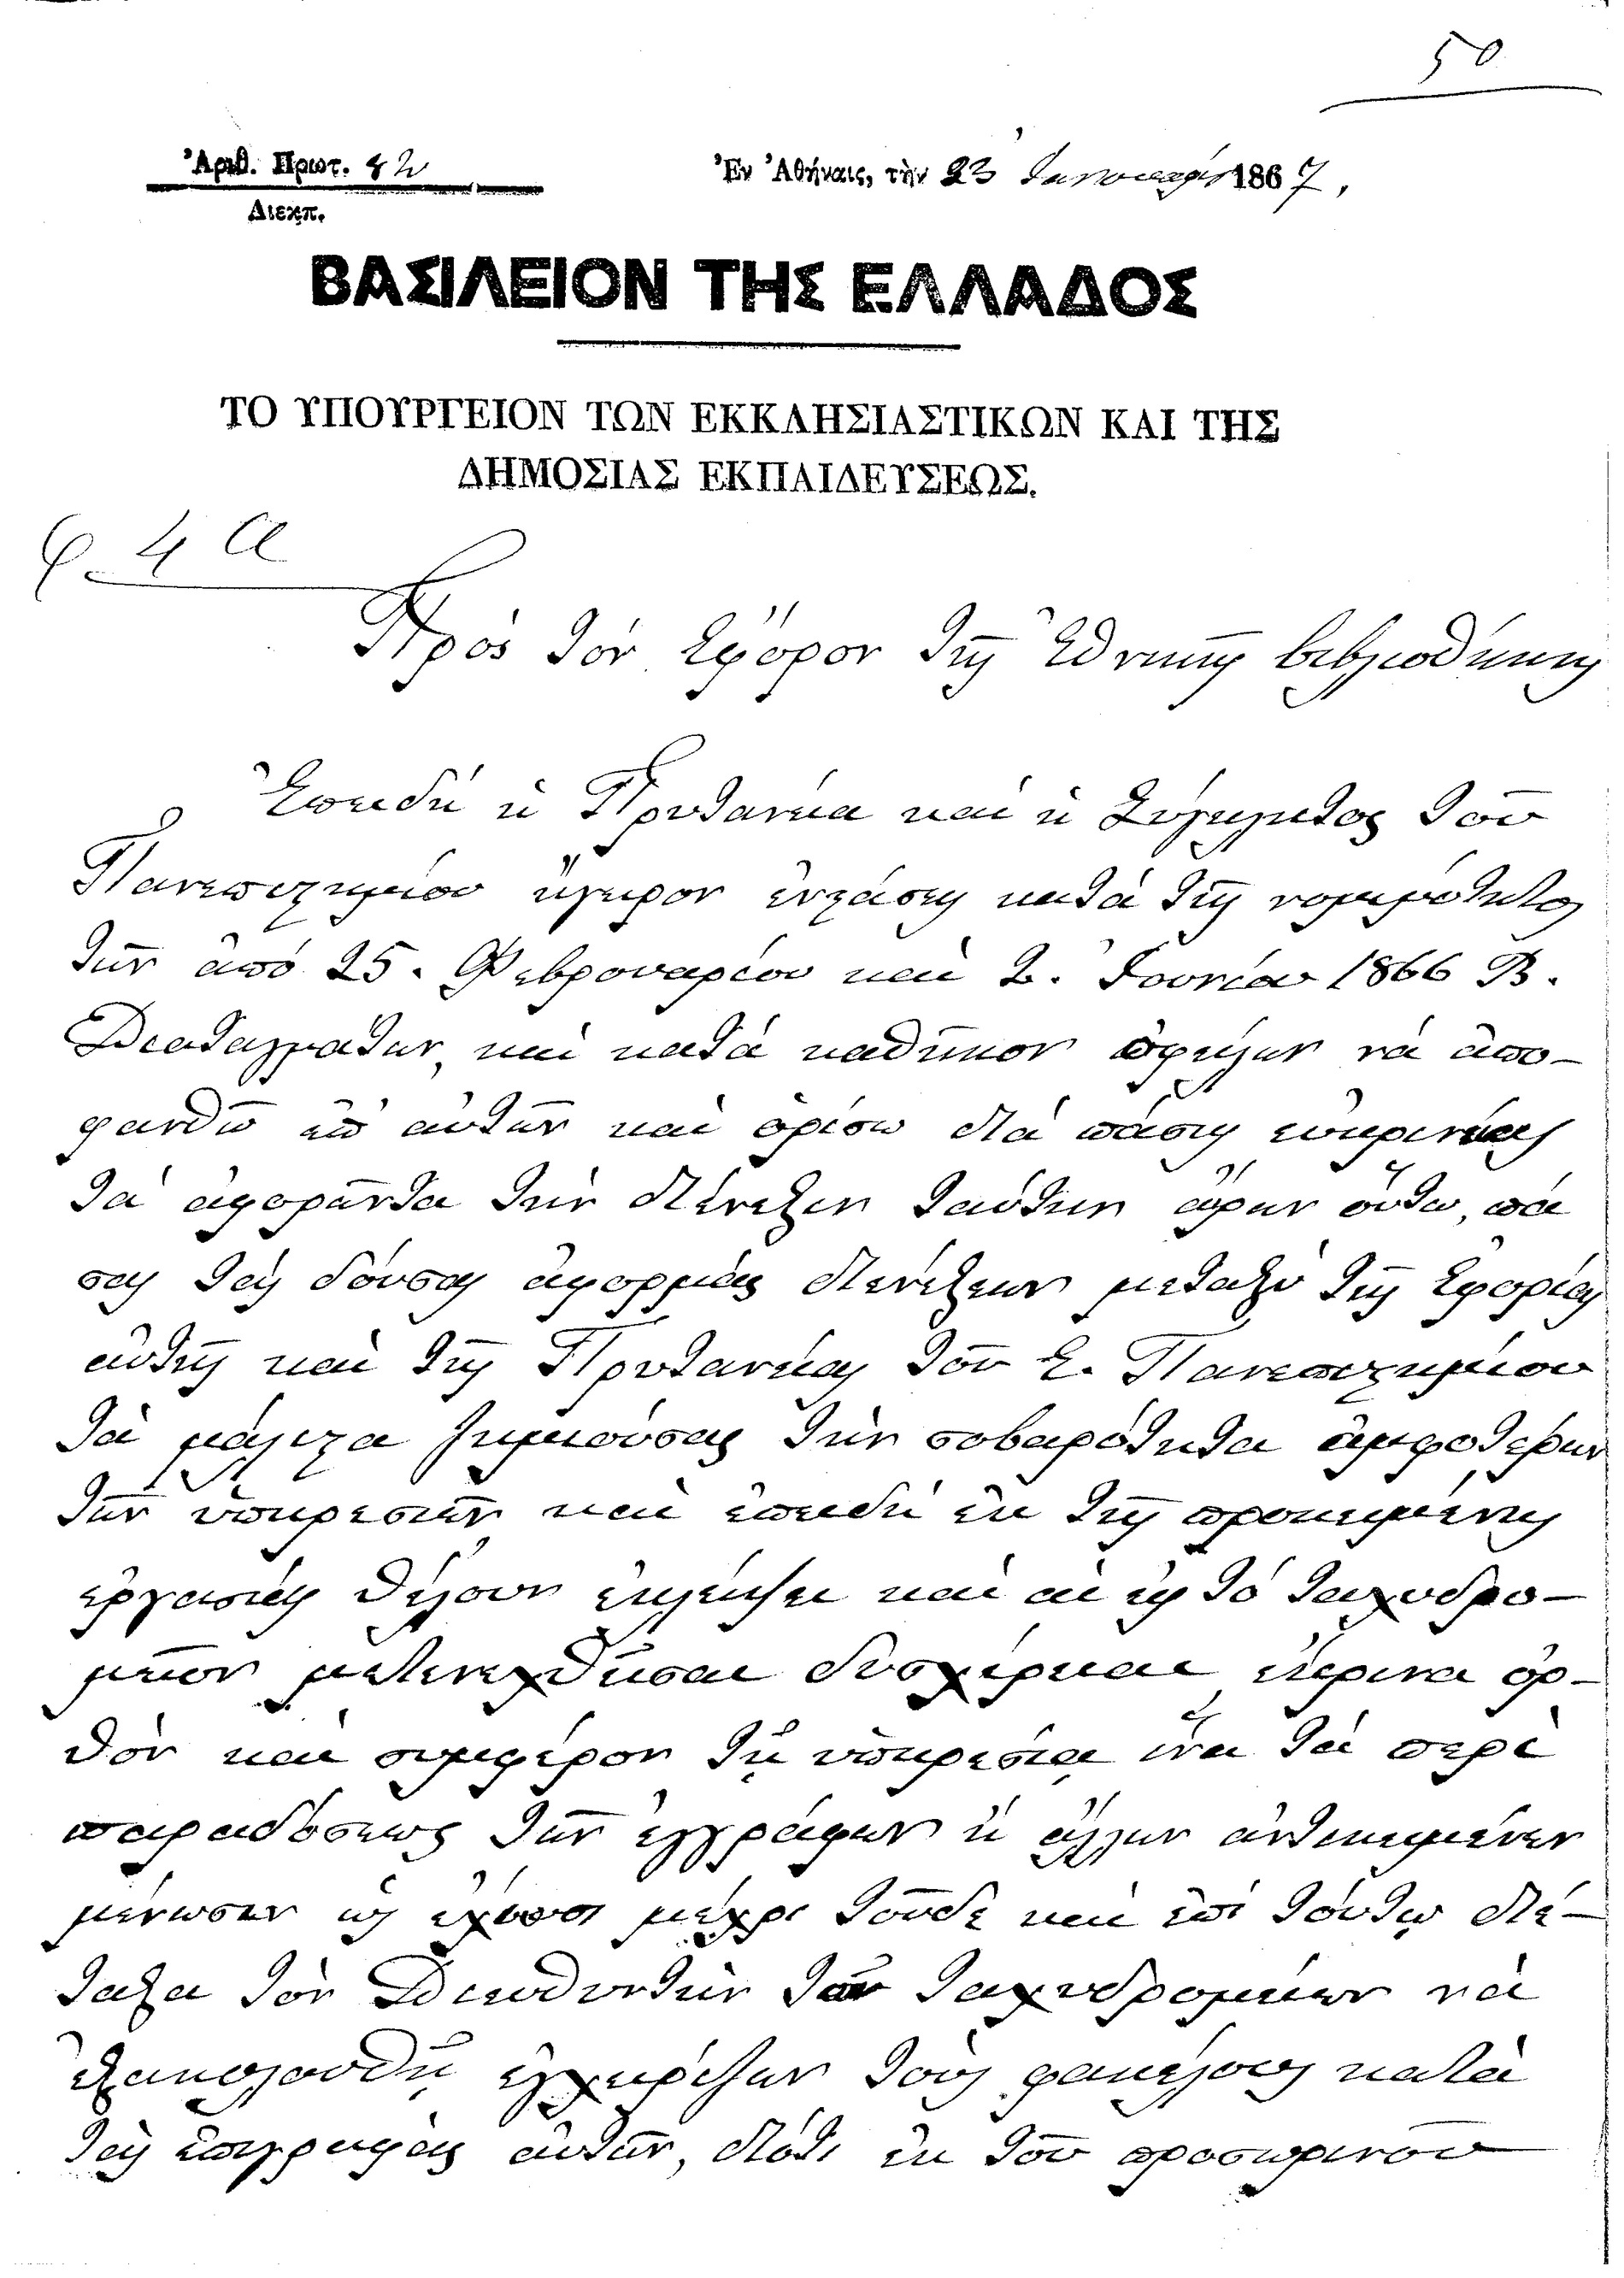 50
Ἀριθ. Πρωτ. 82
Διεκπ.
Ἐν Ἀθήναις, τὴν 23 Ἰανουαρίου 1867,
ΒΑΣΙΛΕΙΟΝ ΤΗΣ ΕΛΛΑΔΟΣ
ΤΟ ΥΠΟΥΡΓΕΙΟΝ ΤΩΝ ΕΚΚΛΗΣΙΑΣΤΙΚΩΝ ΚΑΙ ΤΗΣ
ΔΗΜΟΣΙΑΣ ΕΚΠΑΙΔΕΥΣΕΩΣ.
φ. 4 α
Πρὸς τὸν Ἔφορον τῆς Ἐθνικῆς βιβλιοθήκης
Ἐπειδὴ ἡ Πρυτανεία καὶ ἡ Σύγκλητος τοῦ
Πανεπιστημίου ἤγειρον ἐνστάσεις κατὰ τῆς νομιμότητος
τῶν ἀπὸ 25. Φεβρουαρίου καὶ 2. Ἰουνίου 1866 Β.
Διαταγμάτων, καὶ κατὰ καθῆκον ὀφείλων νὰ ἀπο-
φανθῶ ἐπ' αὐτῶν καὶ ὁρίσω διὰ πάσης εὐκρινείας
τὰ ἀφορῶντα τὴν διένεξιν ταύτην αἴρων οὕτω, πά
σας τὰς δούσας ἀφορμὰς διενέξεων μεταξὺ τῆς Ἐφορίας
αὐτῆς καὶ τῆς Πρυτανείας τοῦ Ἐ. Πανεπιστημίου
τὰ μάλιστα ζημιούσας τὴν σοβαρότητα ἀμφοτέρων
τῶν ὑπηρεσιῶν καὶ ἐπειδὴ ἐκ τῆς προκειμένης
ἐργασίας θέλουν ἐκλείψει καὶ αἱ εἰς τὸ ταχυδρο-
μεῖον μετενεχθεῖσαι δυσχέρειαι, ἔκρινα ὀρ-
θὸν καὶ συμφέρον τῇ ὑπηρεσίᾳ ἵνα τὰ περὶ
παραδόσεως τῶν ἐγγράφων ἢ ἄλλων ἀντικειμένων
μένωσιν ὡς ἔχουσι μέχρι τοῦδε καὶ ἐπὶ τούτῳ διέ-
ταξα τὸν Διευθυντὴν τῶν ταχυδρομείων νὰ
ἐξακολουθῇ ἐγχειρίζων τοὺς φακέλους κατὰ
τὰς ἐπιγραφὰς αὐτῶν, διότι ἐκ τοῦ προσωρινοῦ